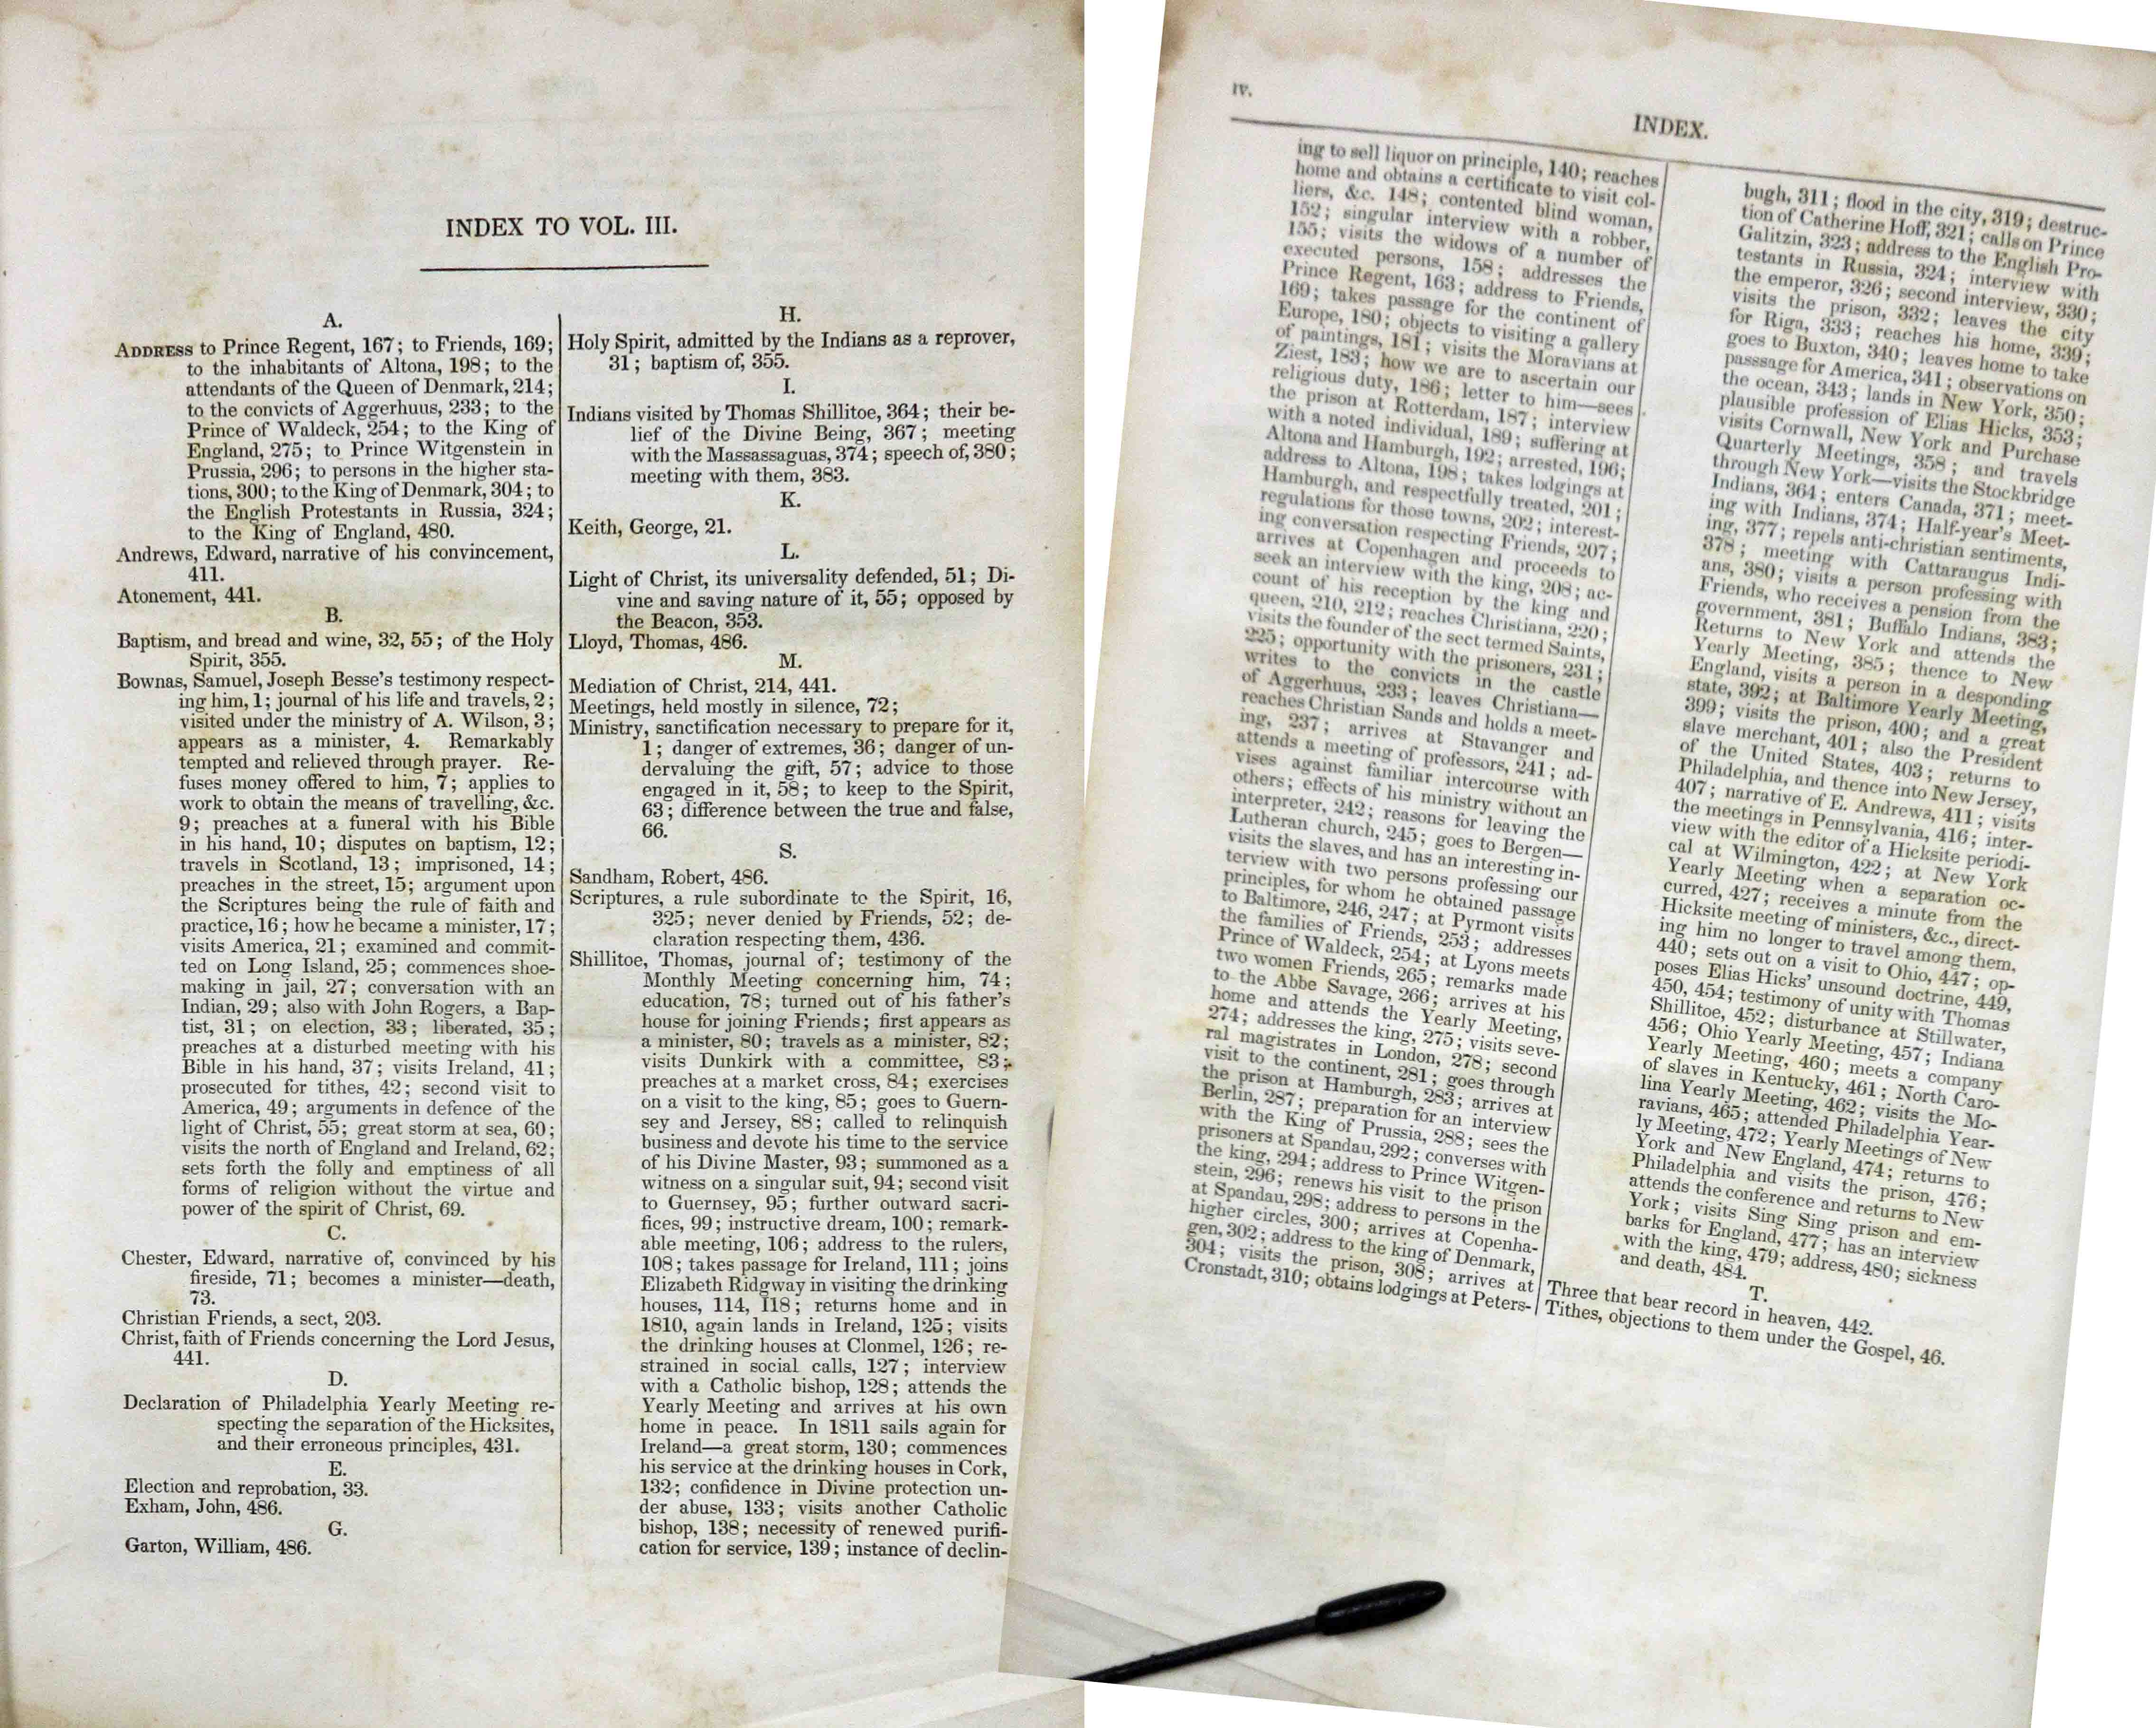 INDEX TO VOL. III.
A.
ADDRESS to Prince Regent, 167; to Friends, 169;
to the inhabitants of Altona, 198; to the
attendants of the Queen of Denmark, 214;
to the convicts of Aggerhuus, 233; to the
Prince of Waldeck, 254; to the King of
England, 275; to Prince Witgenstein in
Prussia, 296; to persons in the higher sta-
tions, 300; to the King of Denmark, 304; to
the English Protestants in Russia, 324;
to the King of England, 480.
Andrews, Edward, narrative of his convincement,
411.
Atonement, 441.
B.
Baptism, and bread and wine, 32, 55; of the Holy
Spirit, 355.
Bownas, Samuel, Joseph Besse's testimony respect-
ing him, 1; journal of his life and travels, 2;
visited under the ministry of A. Wilson, 3;
appears as a minister, 4. Remarkably
tempted and relieved through prayer. Re-
fuses money offered to him, 7; applies to
work to obtain the means of travelling, &c.
9; preaches at a funeral with his Bible
in his hand, 10; disputes on baptism, 12;
travels in Scotland, 13; imprisoned, 14;
preaches in the street, 15; argument upon
the Scriptures being the rule of faith and
practice, 16; how he became a minister, 17;
visits America, 21; examined and commit-
ted on Long Island, 25; commences shoe-
making in jail, 27; conversation with an
Indian, 29; also with John Rogers, a Bap-
tist, 31; on election, 33; liberated, 35;
preaches at a disturbed meeting with his
Bible in his hand, 37; visits Ireland, 41;
prosecuted for tithes, 42; second visit to
America, 49; arguments in defence of the
light of Christ, 55; great storm at sea, 60;
visits the north of England and Ireland, 62;
sets forth the folly and emptiness of all
forms of religion without the virtue and
power of the spirit of Christ, 69.
C.
Chester, Edward, narrative of, convinced by his
fireside, 71; becomes a minister—death,
73.
Christian Friends, a sect, 203.
Christ, faith of Friends concerning the Lord Jesus,
441.
D.
Declaration of Philadelphia Yearly Meeting re-
specting the separation of the Hicksites,
and their erroneous principles, 431.
E.
Election and reprobation, 33.
Exham, John, 486.
G.
Garton, William, 486.
H.
Holy Spirit, admitted by the Indians as a reprover,
31; baptism of, 355.
I.
Indians visited by Thomas Shillitoe, 364; their be-
lief of the Divine Being, 367; meeting
with the Massassaguas, 374; speech of, 380;
meeting with them, 383.
K.
Keith, George, 21.
L.
Light of Christ, its universality defended, 51; Di-
vine and saving nature of it, 55; opposed by
the Beacon, 353.
Lloyd, Thomas, 486.
M.
Mediation of Christ, 214, 441.
Meetings, held mostly in silence, 72;
Ministry, sanctification necessary to prepare for it,
1; danger of extremes, 36; danger of un-
dervaluing the gift, 57; advice to those
engaged in it, 58; to keep to the Spirit,
63; difference between the true and false,
66.
S.
Sandham, Robert, 486.
Scriptures, a rule subordinate to the Spirit, 16,
325; never denied by Friends, 52; de-
claration respecting them, 436.
Shillitoe, Thomas, journal of; testimony of the
Monthly Meeting concerning him, 74;
education, 78; turned out of his father's
house for joining Friends; first appears as
a minister, 80; travels as a minister, 82;
visits Dunkirk with a committee, 83;
preaches at a market cross, 84; exercises
on a visit to the king, 85; goes to Guern-
sey and Jersey, 88; called to relinquish
business and devote his time to the service
of his Divine Master, 93; summoned as a
witness on a singular suit, 94; second visit
to Guernsey, 95; further outward sacri-
fices, 99; instructive dream, 100; remark-
able meeting, 106; address to the rulers,
108; takes passage for Ireland, 111; joins
Elizabeth Ridgway in visiting the drinking
houses, 114, 118; returns home and in
1810, again lands in Ireland, 125; visits
the drinking houses at Clonmel, 126; re-
strained in social calls, 127; interview
with a Catholic bishop, 128; attends the
Yearly Meeting and arrives at his own
home in peace. In 1811 sails again for
Ireland—a great storm, 130; commences
his service at the drinking houses in Cork,
132; confidence in Divine protection un-
der abuse, 133; visits another Catholic
bishop, 138; necessity of renewed purifi-
cation for service, 139; instance of declin-
IV.
INDEX.
ing to sell liquor on principle, 140; reaches
home and obtains a certificate to visit col-
liers, &c. 148; contented blind woman,
152; singular interview with a robber,
155; visits the widows of a number of
executed persons, 158; addresses the
Prince Regent, 163; address to Friends,
169; takes passage for the continent of
Europe, 180; objects to visiting a gallery
of paintings, 181; visits the Moravians at
Ziest, 183; how we are to ascertain our
religious duty, 186; letter to him—sees
the prison at Rotterdam, 187; interview
with a noted individual, 189; suffering at
Altona and Hamburgh, 192; arrested, 196;
address to Altona, 198; takes lodgings at
Hamburgh, and respectfully treated, 201;
regulations for those towns, 202; interest-
ing conversation respecting Friends, 207;
arrives at Copenhagen and proceeds to
seek an interview with the king, 208; ac-
count of his reception by the king and
queen, 210, 212; reaches Christiana, 220;
visits the founder of the sect termed Saints,
225; opportunity with the prisoners, 231;
writes to the convicts in the castle
of Aggerhuus, 233; leaves Christiana—
reaches Christian Sands and holds a meet-
ing, 237; arrives at Stavanger and
attends a meeting of professors, 241; ad-
vises against familiar intercourse with
others; effects of his ministry without an
interpreter, 242; reasons for leaving the
Lutheran church, 245; goes to Bergen—
visits the slaves, and has an interesting in-
terview with two persons professing our
principles, for whom he obtained passage
to Baltimore, 246, 247; at Pyrmont visits
the families of Friends, 253; addresses
Prince of Waldeck, 254; at Lyons meets
two women Friends, 265; remarks made
to the Abbe Savage, 266; arrives at his
home and attends the Yearly Meeting,
274; addresses the king, 275; visits seve-
ral magistrates in London, 278; second
visit to the continent, 281; goes through
the prison at Hamburgh, 283; arrives at
Berlin, 287; preparation for an interview
with the King of Prussia, 288; sees the
prisoners at Spandau, 292; converses with
the king, 294; address to Prince Witgen-
stein, 296; renews his visit to the prison
at Spandau, 298; address to persons in the
higher circles, 300; arrives at Copenha-
gen, 302; address to the king of Denmark,
304; visits the prison, 308; arrives at
Cronstadt, 310; obtains lodgings at Peters-
bugh, 311; flood in the city, 319; destruc-
tion of Catherine Hoff, 321; calls on Prince
Galitzin, 323; address to the English Pro-
testants in Russia, 324; interview with
the emperor, 326; second interview, 330;
visits the prison, 332; leaves the city
for Riga, 333; reaches his home, 339;
goes to Buxton, 340; leaves home to take
passsage for America, 341; observations on
the ocean, 343; lands in New York, 350;
plausible profession of Elias Hicks, 353;
visits Cornwall, New York and Purchase
Quarterly Meetings, 358; and travels
through New York—visits the Stockbridge
Indians, 364; enters Canada, 371; meet-
ing with Indians, 374; Half-year's Meet-
ing, 377; repels anti-christian sentiments,
378; meeting with Cattaraugus Indi-
ans, 380; visits a person professing with
Friends, who receives a pension from the
government, 381; Buffalo Indians, 383;
Returns to New York and attends the
Yearly Meeting, 385; thence to New
England, visits a person in a desponding
state, 392; at Baltimore Yearly Meeting,
399; visits the prison, 400; and a great
slave merchant, 401; also the President
of the United States, 403; returns to
Philadelphia, and thence into New Jersey,
407; narrative of E. Andrews, 411; visits
the meetings in Pennsylvania, 416; inter-
view with the editor of a Hicksite periodi-
cal at Wilmington, 422; at New York
Yearly Meeting when a separation oc-
curred, 427; receives a minute from the
Hicksite meeting of ministers, &c., direct-
ing him no longer to travel among them,
440; sets out on a visit to Ohio, 447; op-
poses Elias Hicks' unsound doctrine, 449,
450, 454; testimony of unity with Thomas
Shillitoe, 452; disturbance at Stillwater,
456; Ohio Yearly Meeting, 457; Indiana
Yearly Meeting, 460; meets a company
of slaves in Kentucky, 461; North Caro-
lina Yearly Meeting, 462; visits the Mo-
ravians, 465; attended Philadelphia Year-
ly Meeting, 472; Yearly Meetings of New
York and New England, 474; returns to
Philadelphia and visits the prison, 476;
attends the conference and returns to New
York; visits Sing Sing prison and em-
barks for England, 477; has an interview
with the king, 479; address, 480; sickness
and death, 484.
T.
Three that bear record in heaven, 442.
Tithes, objections to them under the Gospel, 46.